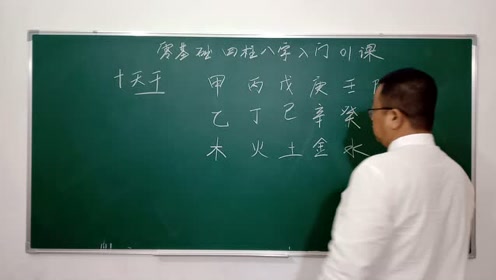 零基础 四柱八字入门 01课
十天干 甲 丙 戊 庚 壬
乙 丁 己 辛 癸
木 火 土 金 水